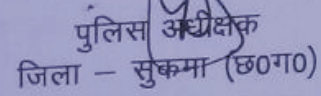 पुलिस अधीक्षक
जिला – सुकमा (छ0ग0)